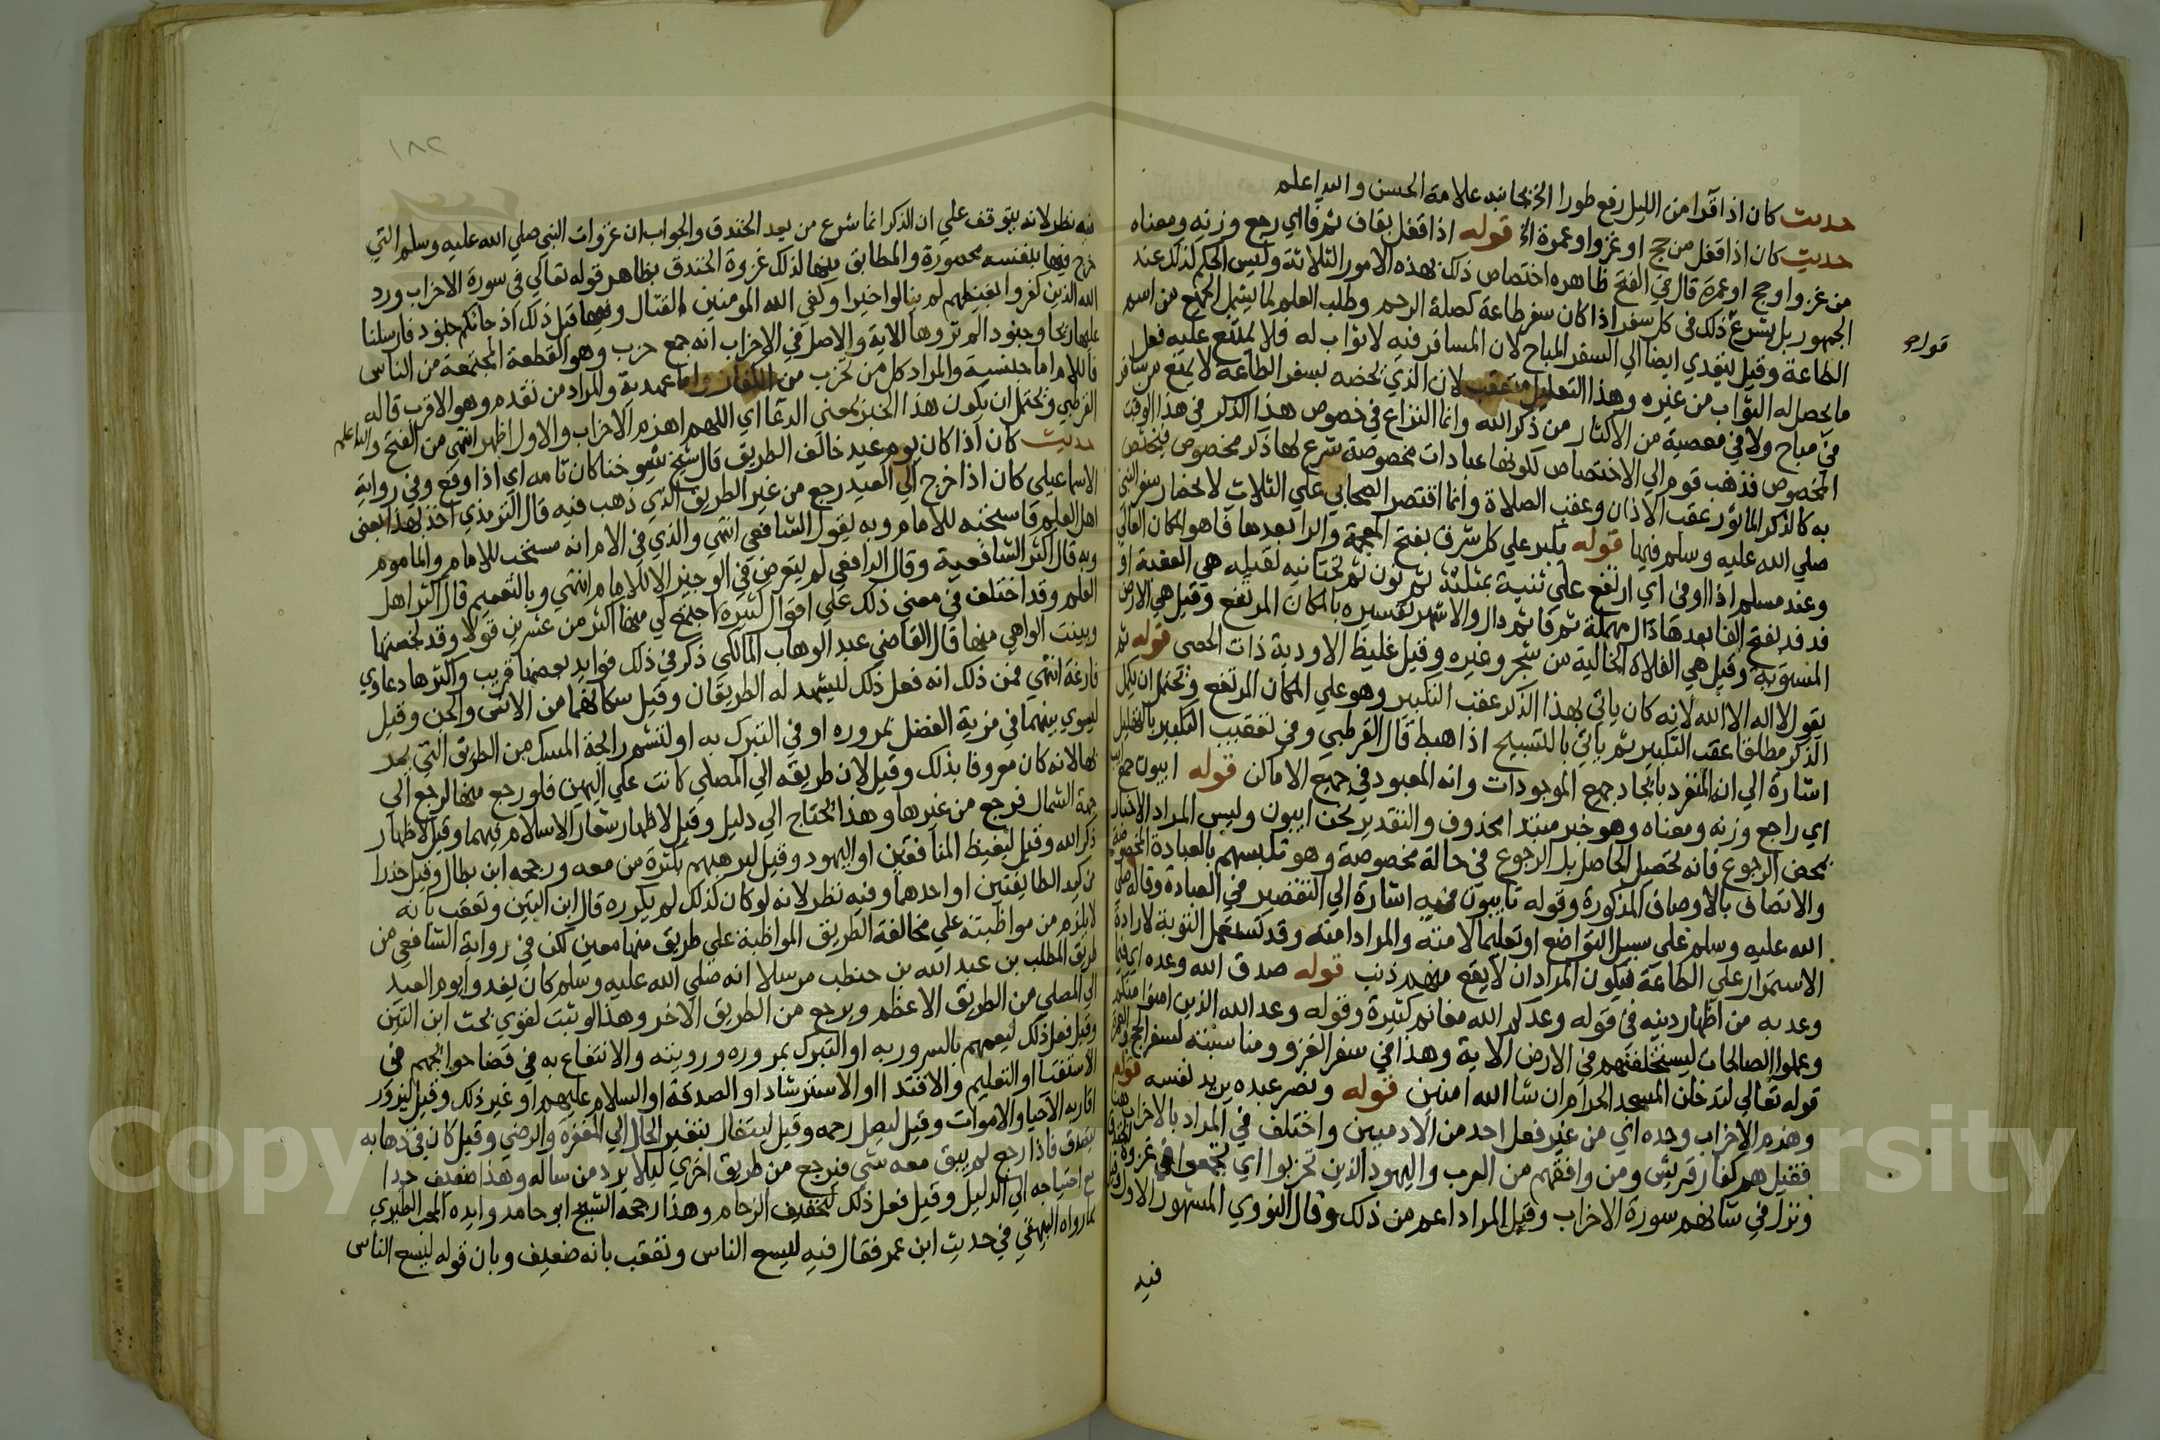 حديث كان اذا قرا من الليل رفع طورا الخ بجانبه علامة الحسن والله اعلم
حديث كان اذا قفل من حج او غزو او عمرة الخ قوله اذا قفل بقاف ثم فا اي رجع وزنه ومعناه
من غزو او حج او عمرة قال في الفتح ظاهره اختصاص ذلك بهذه الامور الثلاثة وليس الحكم كذلك عند
الجمهور بل يشرع ذلك في كل سفر اذا كان سفر طاعة كصلة الرحم وطلب العلم لما يشمل الجميع من اسم
الطاعة وقيل يتعدي ايضا الي السفر المباح لان المسافر فيه لا ثواب له فلا يمتنع عليه فعل
ما يحصل له الثواب من غيره وهذا التعليل متعقب لان الذي يخصه بسفر الطاعة لا يمنع من سافر
في مباح ولا في معصية من الاكثار من ذكر الله وانما النزاع في خصوص هذا الذكر في هذا الوقت
المخصوص فذهب قوم الي الاختصاص لكونها عبادات مخصوصة شرع لها ذكر مخصوص فتختص
به كالذكر الماثور عقب الاذان وعقب الصلاة وانما اقتصر الصحابي علي الثلاث لانحصار سفر النبي
صلي الله عليه وسلم فيها قوله يكبر علي كل شرف بفتح المعجمة والرا بعدها فا هو المكان العالي
وعند مسلم اذا اوفي اي ارتفع علي ثنية بمثلثة ثم نون ثم تحتانية ثقيلة هي العقبة او
فدفد بفتح الفا بعدها دال مهملة ثم فا ثم دال والاشهر تفسيره بالمكان المرتفع وقيل هي الارض
المستوية وقيل هي الفلاة الخالية من شجر وغيره وقيل غليظ الاودية ذات الحصي قوله ثم
يقول لا اله الا الله لانه كان ياتي بهذا الذكر عقب التكبير وهو علي المكان المرتفع ويحتمل ان يكمل
الذكر مطلقا عقب التكبير ثم ياتي بالتسبيح اذا هبط قال القرطبي وفي تعقيب التكبير بالتهليل
اشارة الي انه المنفرد بايجاد جميع الموجودات وانه المعبود في جميع الاماكن قوله ايبون جمع ايب
اي راجع وزنه ومعناه وهو خبر مبتدا محذوف والتقدير نحن ايبون وليس المراد الاخبار
بمحض الرجوع فانه تحصيل الحاصل بل الرجوع في حالة مخصوصة وهو تلبسهم بالعبادة المخصوصة
والاتصاف بالاوصاف المذكورة وقوله تايبون فيه اشارة الي التقصير في العبادة وقاله صلي
الله عليه وسلم علي سبيل التواضع او تعليما لامته والمراد امته وقد تستعمل التوبة لارادة
الاستمرار علي الطاعة فيكون المراد ان لا يقع منهم ذنب قوله صدق الله وعده اي فيما
وعد به من اظهار دينه في قوله وعدكم الله مغانم كثيرة وقوله وعد الله الذين امنوا منكم
وعملوا الصالحات ليستخلفنهم في الارض الاية وهذا في سفر الغزو ومناسبته لسفر الحج والعمرة
قوله تعالي لتدخلن المسجد الحرام ان شا الله امنين قوله ونصر عبده يريد نفسه قوله
وهزم الاحزاب وحده اي من غير فعل احد من الادميين واختلف في المراد بالاحزاب هنا
فقيل هم كفار قريش ومن وافقهم من العرب واليهود الذين تحزبوا اي تجمعوا في غزوة الخندق
ونزل في شانهم سورة الاحزاب وقيل المراد اعم من ذلك وقال النووي المشهور الاول وقيل
فيه
قوله
١٨٢
فيه نظر لانه يتوقف علي ان الذكر انما شرع من بعد الخندق والجواب ان غزوات النبي صلي الله عليه وسلم التي
خرج فيها بنفسه محصورة والمطابق منها لذلك غزوة الخندق بظاهر قوله تعالي في سورة الاحزاب ورد
الله الذين كفروا بغيظهم لم ينالوا خيرا وكفي الله المومنين القتال وفيها قبل ذلك اذ جاتكم جنود فارسلنا
عليهم ريحا وجنودا لم تروها الاية والاصل في الاحزاب انه جمع حزب وهو القطعة المجتمعة من الناس
فاللام اما جنسية والمراد كل من تحزب من الكفار واما عهدية والمراد من تقدم وهو الاقرب قاله
القرطبي ويحتمل ان يكون هذا الخبر بمعني الدعا اي اللهم اهزم الاحزاب والاول اظهر انتهي من الفتح والله اعلم
حديث كان اذا كان يوم عيد خالف الطريق قال شيخ شيوخنا كان تامه اي اذا وقع وفي رواية
الاسماعيلي كان اذا خرج الي العيد رجع من غير الطريق الذي ذهب فيه قال الترمذي اخذ بهذا بعض
اهل العلم فاستحبه للامام وبه يقول الشافعي انتهي والذي في الام انه مستحب للامام والماموم
وبه قال اكثر الشافعية وقال الرافعي لم يتعرض في الوجيز الا للامام انتهي وبالتعميم قال اكثر اهل
العلم وقد اختلف في معني ذلك علي اقوال كثيرة اجتمع لي منها اكثر من عشرين قولا وقد لخصتها
وبينت الواهي منها قال القاضي عبد الوهاب المالكي ذكر في ذلك فوايد بعضها قريب واكثرها دعاوي
فارغة انتهي فمن ذلك انه فعل ذلك ليشهد له الطريقان وقيل سكانهما من الانس والجن وقيل
ليسوي بينهما في مزية الفضل بمروره او في التبرك به او لتشم رايحة المسك من الطريق التي يمر
بها لانه كان معروفا بذلك وقيل لان طريقه الي المصلي كانت علي اليمين فلو رجع منها لرجع الي
جهة الشمال فرجع من غيرها وهذا يحتاج الي دليل وقيل لاظهار شعار الاسلام فيهما وقيل لاظهار
ذكر الله وقيل ليغيظ المنافقين او اليهود وقيل ليرهبهم بكثرة من معه ورجحه ابن بطال وقيل حذرا
من كيد الطايفتين او احدهما وفيه نظر لانه لو كان كذلك لم يكرره قال ابن التين وتعقب بانه
لا يلزم من مواظبته علي مخالفة الطريق المواظبة علي طريق منها معين لكن في رواية الشافعي من
طريق المطلب بن عبد الله بن حنطب مرسلا انه صلي الله عليه وسلم كان يغدو يوم العيد
الي المصلي من الطريق الاعظم ويرجع من الطريق الاخر وهذا لو ثبت لقوي بحث ابن التين
وقيل فعل ذلك ليعمهم بالسرور به او التبرك بمروره ورويته والانتفاع به في قضا حوايجهم في
الاستفتا او التعليم والاقتدا او الاسترشاد او الصدقة او السلام عليهم او غير ذلك وقيل ليزور
اقاربه الاحيا والاموات وقيل ليصل رحمه وقيل ليتفال بتغير الحال الي المغفرة والرضي وقيل كان في ذهابه
يتصدق فاذا رجع لم يبق معه شي فيرجع من طريق اخري ليلا يرد من ساله وهذا ضعيف جدا
مع احتياجه الي الدليل وقيل فعل ذلك لتخفيف الزحام وهذا رجحه الشيخ ابو حامد وايده المحب الطبري
بما رواه البيهقي في حديث ابن عمر فقال فيه ليسع الناس وتعقب بانه ضعيف وبان قوله ليسع الناس